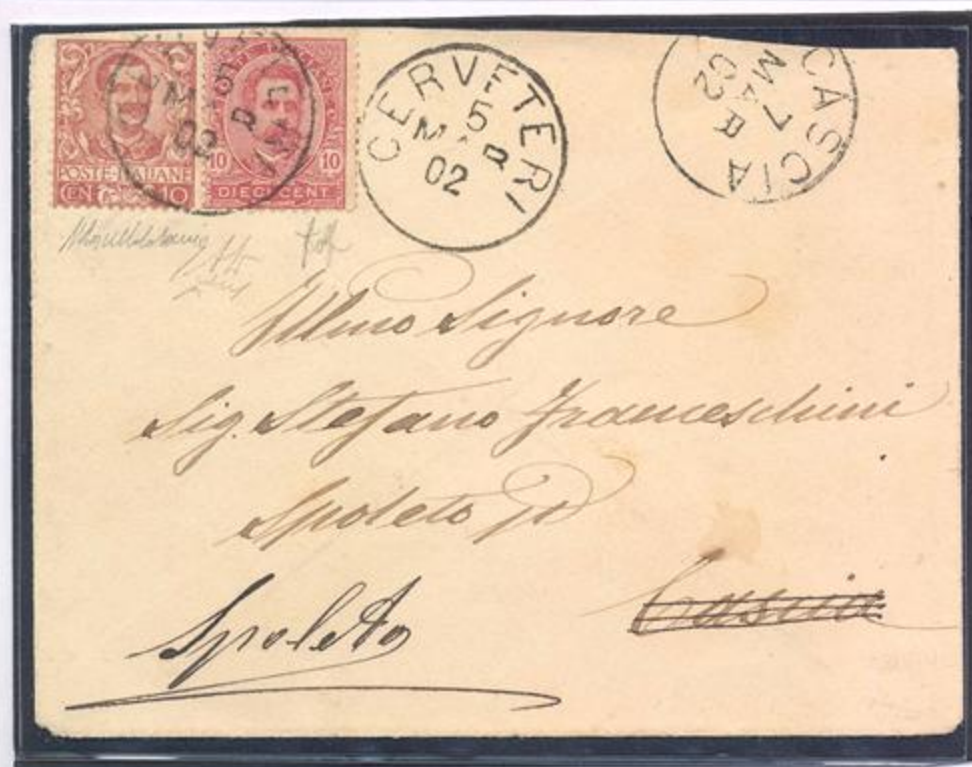 POSTE·ITALIANE
CEN 10
10 10
DIECI CENT
CERVETERI
5
MAR
02
CASCIA
7
MAR
02
Illmo Signore
Sig. Stefano Franceschini
Spoleto
Cascia
Spoleto